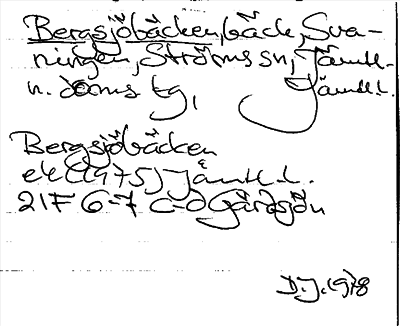 Bergsjöbäcken, bäck, Sva-
ningen, Ströms sn, Jämtl.
n. doms tg, Jämtl.
Bergsjöbäcken
ek (1975) Jämtl. l.
21F 6-7 c-d Gärdsjön
D.J. 1978